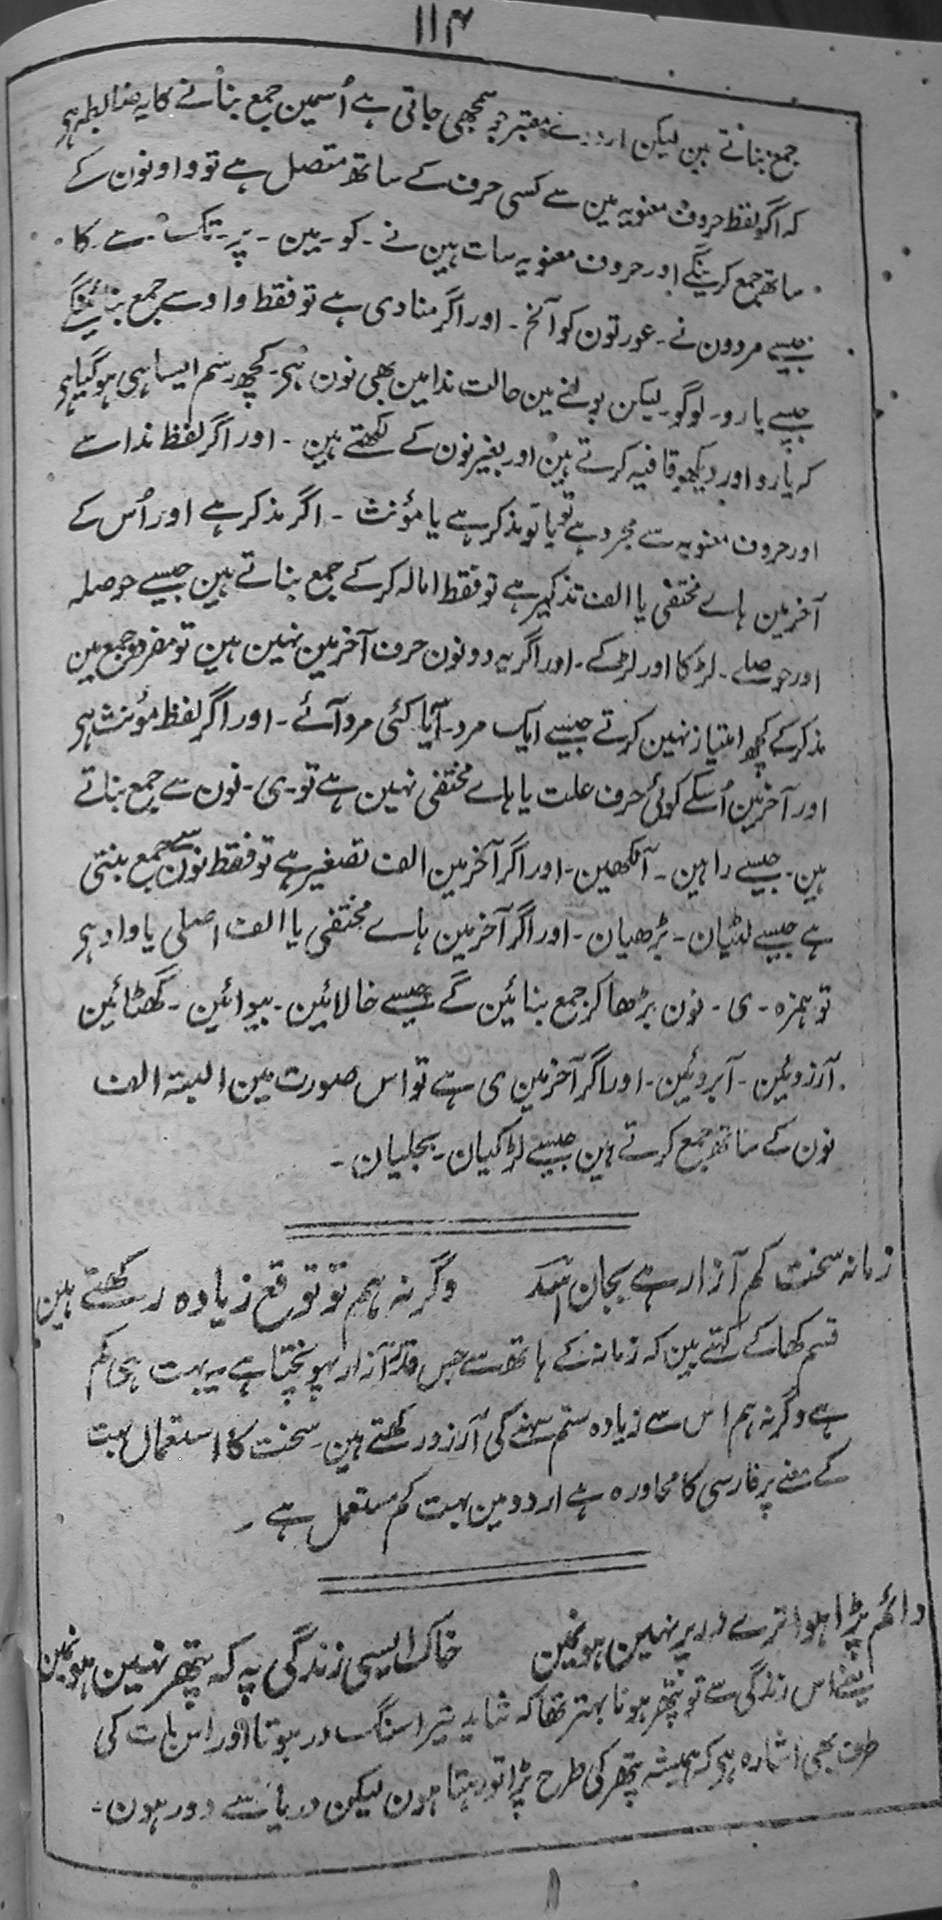 ۱۱۴
جمع بناتے ہین لیکن اردوے معتبر جو سمجھی جاتی ہے اُسمین جمع بنانے کا یہ ضابطہ ہی
کہ اگر لفظ حروف معنویہ مین سے کسی حرف کے ساتھ متصل ہے تو واو نون کے
ساتھ جمع کرینگے اور حروف معنویہ سات ہین نے ۔ کو ۔ مین ۔ پر ۔ تک ۔ سے ۔ کا
جیسے مردون نے ۔ عورتون کو الخ ۔ اور اگر منادی ہے تو فقط واو سے جمع بنائینگے
جیسے یارو ۔ لوگو ۔ لیکن بولنے مین حالت ندا مین بھی نون ہی ۔ کچھ رسم ایسا ہی ہو گیا ہی
کہ یارو اور دیکھو قافیہ کرتے ہین اور بغیر نون کے لکھتے ہین ۔ اور اگر لفظ ندا سے
اور حروف معنویہ سے مجرد ہے تو یا تو مذکر ہے یا مؤنث ۔ اگر مذکر ہے اور اُس کے
آخر مین ہاے مختفی یا الف تذکیر ہے تو فقط امالہ کر کے جمع بناتے ہین جیسے حوصلہ
اور حوصلے ۔ لڑکا اور لڑکے ۔ اور اگر یہ دونون حرف آخر مین نہین ہین تو مفرد و جمع مین
مذکر کے کچھ امتیاز نہین کرتے جیسے ایک مرد آیا کئی مرد آئے ۔ اور اگر لفظ مؤنث ہی
اور آخر مین اُسکے کوئی حرف علت یا ہاے مختفی نہین ہے تو ۔ ی ۔ نون سے جمع بناتے
ہین ۔ جیسے راہین ۔ آنکھین ۔ اور اگر آخر مین الف تصغیر ہے تو فقط نون سے جمع بنتی
ہے جیسے لٹیان ۔ بڑھیان ۔ اور اگر آخر مین ہاے مختفی یا الف اصلی یا واو ہی
تو ہمزہ ۔ ی ۔ نون بڑھا کر جمع بنائین گے جیسے خالائین ۔ بیوائین ۔ گھٹائین
آرزوئین ۔ آبروئین ۔ اور اگر آخر مین ی ہے تو اس صورت مین البتہ الف
نون کے ساتھ جمع کرتے ہین جیسے لڑکیان ۔ بجلیان ۔
زمانہ سخت کم آزار ہے بجان اسد وگرنہ ہم تو توقع زیادہ رکھتے ہین
قسم کھا کے کہتے ہین کہ زمانہ کے ہاتھ سے جس قدر آزار پہونچتا ہے یہ بہت ہی کم
ہے وگرنہ ہم اس سے زیادہ ستم سہنے کی آرزو رکھتے ہین ۔ سخت کا استعمال بہت
کے معنے پر فارسی کا محاورہ ہے اردو مین بہت کم مستعمل ہے ۔
دائم پڑا ہوا ترے در پر نہین ہون مین خاک ایسی زندگی پہ کہ پتھر نہین ہون مین
یعنے اس زندگی سے تو پتھر ہونا بہتر تھا کہ شاید تیرا سنگ در ہوتا اور اس بات کی
طرف بھی اشارہ ہی کہ ہمیشہ پتھر کی طرح پڑا تو رہتا ہون لیکن در یار سے دور ہون ۔